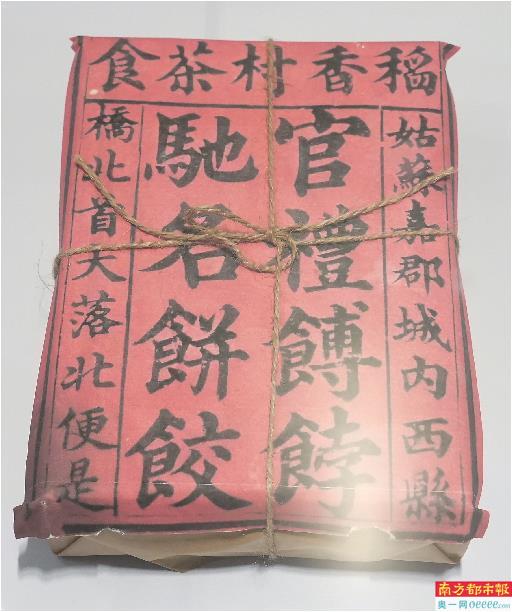 稻香村茶食
姑蘇嘉郡城内西縣
官禮餺餑
馳名餅餃
橋北首天落北便是
南方都市報
奥一网oeeee.com